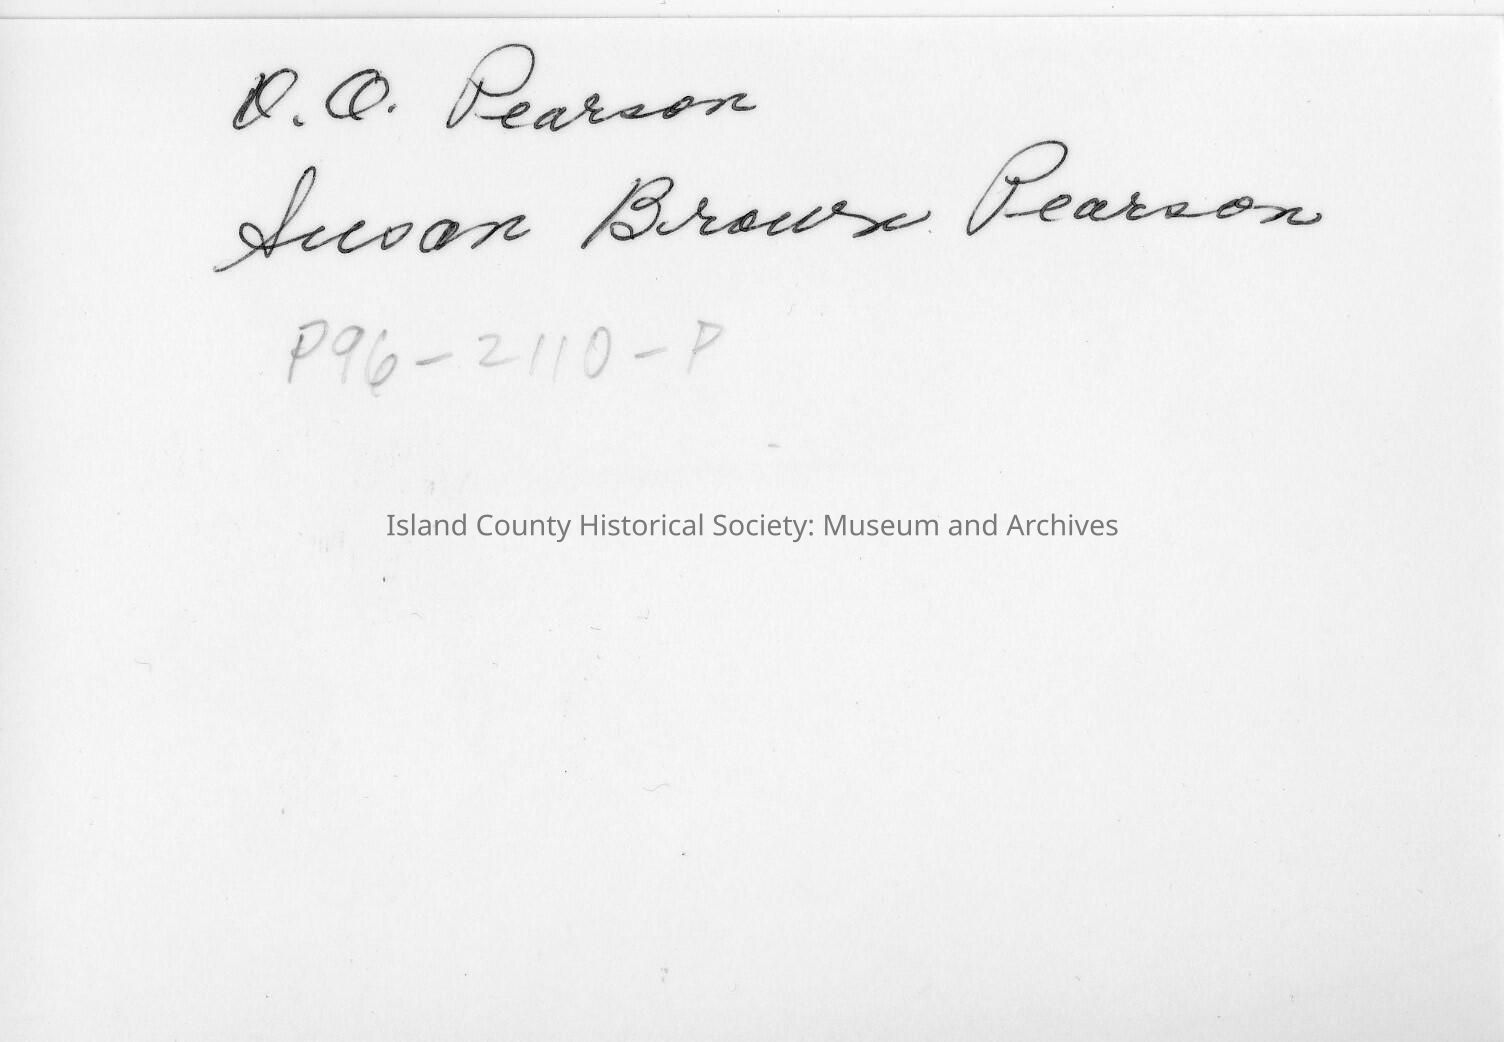 D. O. Pearson
Susan Brown Pearson
P96-2110-P
Island County Historical Society: Museum and Archives